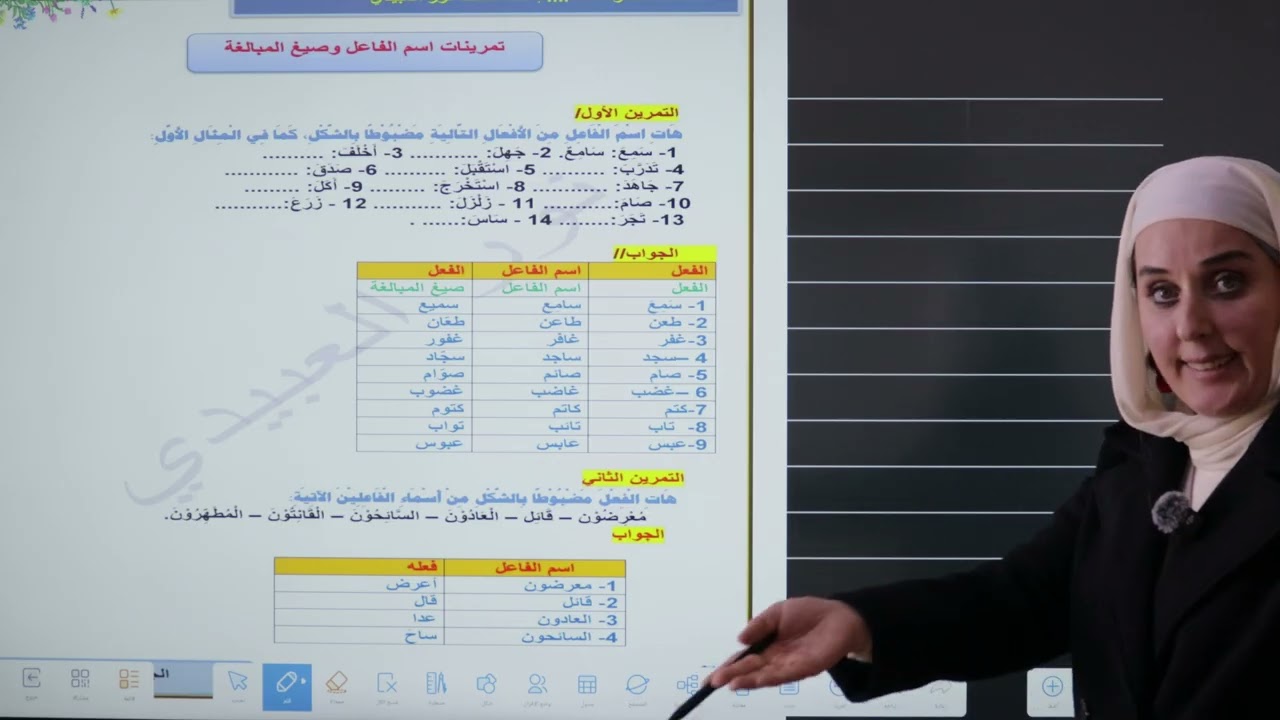 تمرينات اسم الفاعل وصيغ المبالغة
التمرين الأول/
هَاتِ اسْمَ الْفَاعِلِ مِنَ الْأَفْعَالِ التَّالِيَةِ مَضْبُوطًا بِالشَّكْلِ، كَمَا فِي الْمِثَالِ الْأَوَّلِ:
1- سَمِعَ: سَامِعٌ. 2- جَهِلَ: .......... 3- أَخْلَفَ: .........
4- تَدَرَّبَ: ......... 5- اسْتَقْبَلَ: ......... 6- صَدَقَ: ...........
7- جَاهَدَ: ........... 8- اسْتَخْرَجَ: ........ 9- أَكَلَ: ........
10- صَامَ:.......... 11 - زَلْزَلَ: .......... 12 - زَرَعَ:...........
13- تَجَرَ:........ 14 - سَاسَ:...... .
الجواب//
الفعل اسم الفاعل الفعل
الفعل اسم الفاعل صيغ المبالغة
1- سَمِعَ سامع سميع
2- طعن طاعن طعّان
3-غفر غافر غفور
4 –سجد ساجد سجّاد
5- صام صائم صوّام
6 –غضب غاضب غضوب
7-كتم كاتم كتوم
8- تاب تائب تواب
9-عبس عابس عبوس
التمرين الثاني
هَاتِ الْفِعْلَ مَضْبُوطًا بِالشَّكْلِ مِنْ أَسْمَاءِ الْفَاعِلِينَ الْآتِيَةِ:
مُعْرِضُوْن – قَائِل – الْعَادُوْنَ – السَّائِحُوْنَ – الْقَانِتُوْنَ – الْمُطَهِّرُوْنَ.
الجواب
اسم الفاعل فعله
1- معرضون أعرض
2- قائل قال
3- العادون عدا
4- السائحون ساح
نور العبيدي